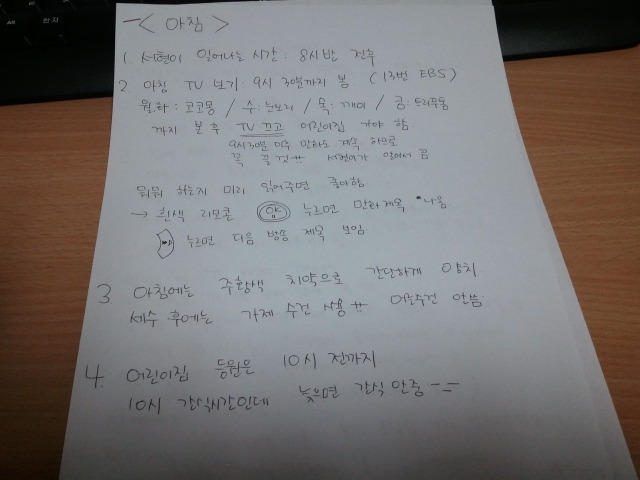 < 아침 >
1. 서현이 일어나는 시간 : 8시반 전후
2. 아침 TV 보기 : 9시 30분까지 봄 (13번 EBS)
월,화 : 코코몽 / 수 : 눈보리 / 목 : 깨미 / 금 : 트리푸톰
까지 본 후 TV 끄고 어린이집 가야 함
9시30분 이후 만화도 계속 하므로
꼭 끌 것!! 서현이가 알아서 끔
뭐뭐 하는지 미리 읽어주면 좋아함
→ 흰색 리모콘 누르면 만화제목 나옴
누르면 다음 방송 제목 보임
3. 아침에는 주황색 치약으로 간단하게 양치
세수 후에는 가제 수건 사용!! 어른수건 안씀
4. 어린이집 등원은 10시 전까지
10시 간식시간인데 늦으면 간식 안줌 -_=